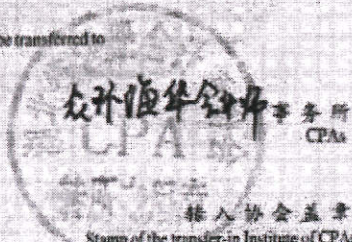 be transferred to
众环海华会计师事务所
CPAs
CPA
转入协会盖章
Stamp of the transfer-in Institute of CPAs